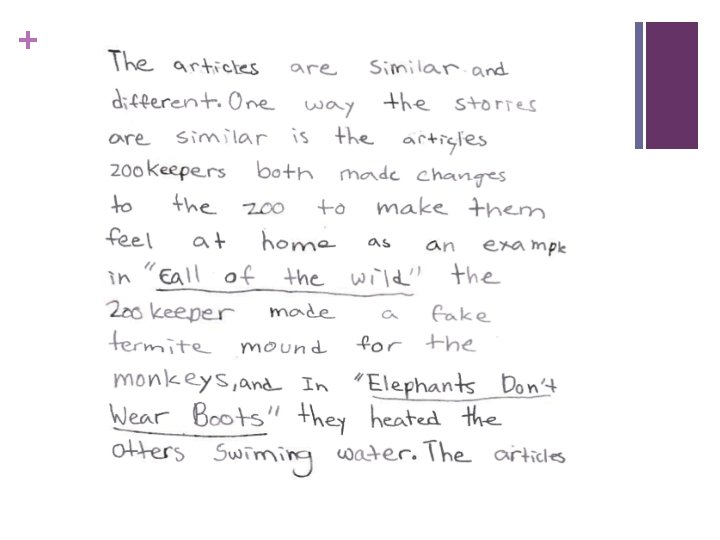 The articles are similar and
different. One way the stories
are similar is the articles
zookeepers both made changes
to the zoo to make them
feel at home as an example
in "Call of the wild" the
Zookeeper made a fake
termite mound for the
monkeys, and In "Elephants Don't
Wear Boots" they heated the
otters swiming water. The articles